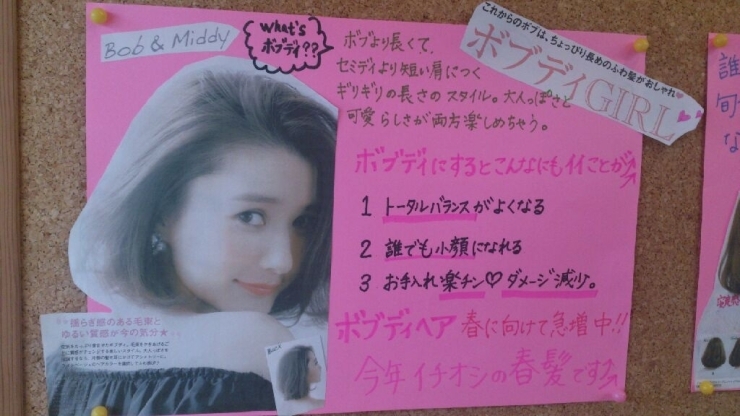 Bob & Middy
What's
ボブディ??
ボブより長くて、
セミディより短い肩につく
ギリギリの長さのスタイル。大人っぽさと
可愛らしさが両方楽しめちゃう。
これからのボブは、ちょっぴり長めのふわ髪がおしゃれ♥
ボブディGIRL
ボブディにするとこんなにもイイことが
1 トータルバランスがよくなる
2 誰でも小顔になれる
3 お手入れ楽チン♡ダメージ減少。
ボブディヘア 春に向けて急増中!!
今年イチオシの春髪です
揺らぎ感のある毛束と
ゆるい質感が今の気分★
誰
旬
な